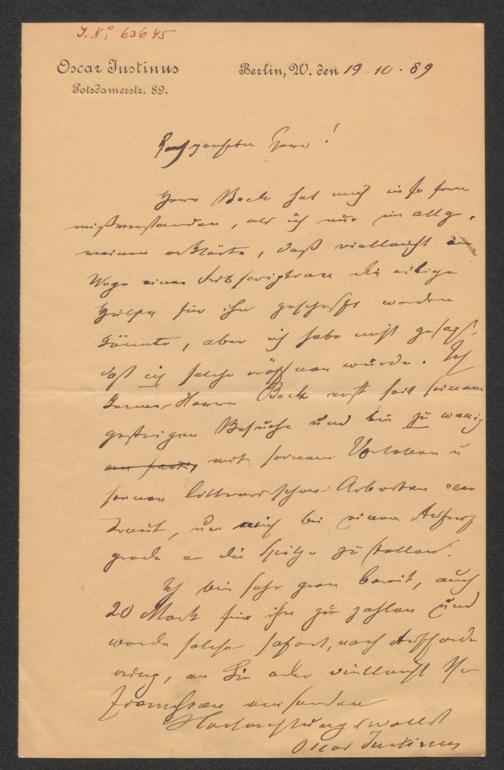 J. N: 63645
Oscar Justinus
Potsdamerstr. 89.
Berlin, W. den 19. 10. 89
Hochgeehrter Herr!
Herr Beck hat mich insofern
mißverstanden, als ich nur im allge-
meinen erklärte, daß vielleicht im
Wege einer Subscription die nötige
für ihn geschafft werden
könnte, aber ich habe nicht gesagt,
daß ich solche eröffnen würde. Ich
kenne Herrn Beck erst seit seinem
gestrigen Besuche und bin zu wenig
mit seinem Vorleben u
seinen litterarischen Arbeiten ver
traut, um mich bei einem Aufruf
grade an die Spitze zu stellen.
Ich bin sehr gern bereit, auch
20 Mark für ihn zu zahlen und
werde solche sofort, nach Aufforde
rung, an Sie oder vielleicht
einsenden
Hochachtungsvollst
Oscar Justinus